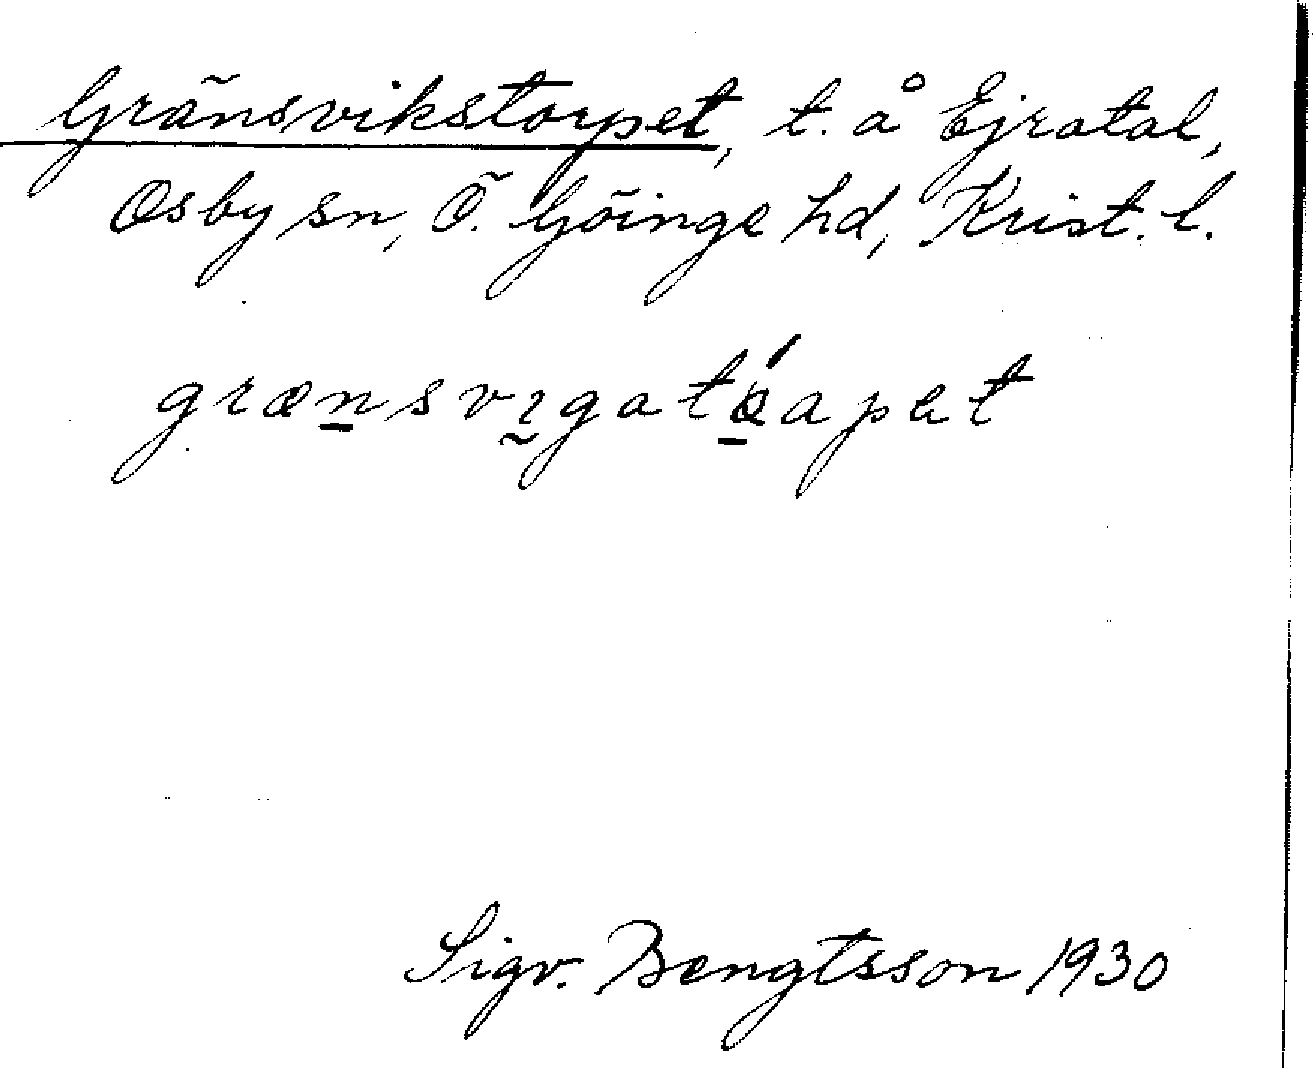 Gränsvikstorpet, t. å Ejratal,
Osby sn, Ö. Göinge hd, Krist. l.
grænsvıgatáapet
Sigv. Bengtsson 1930